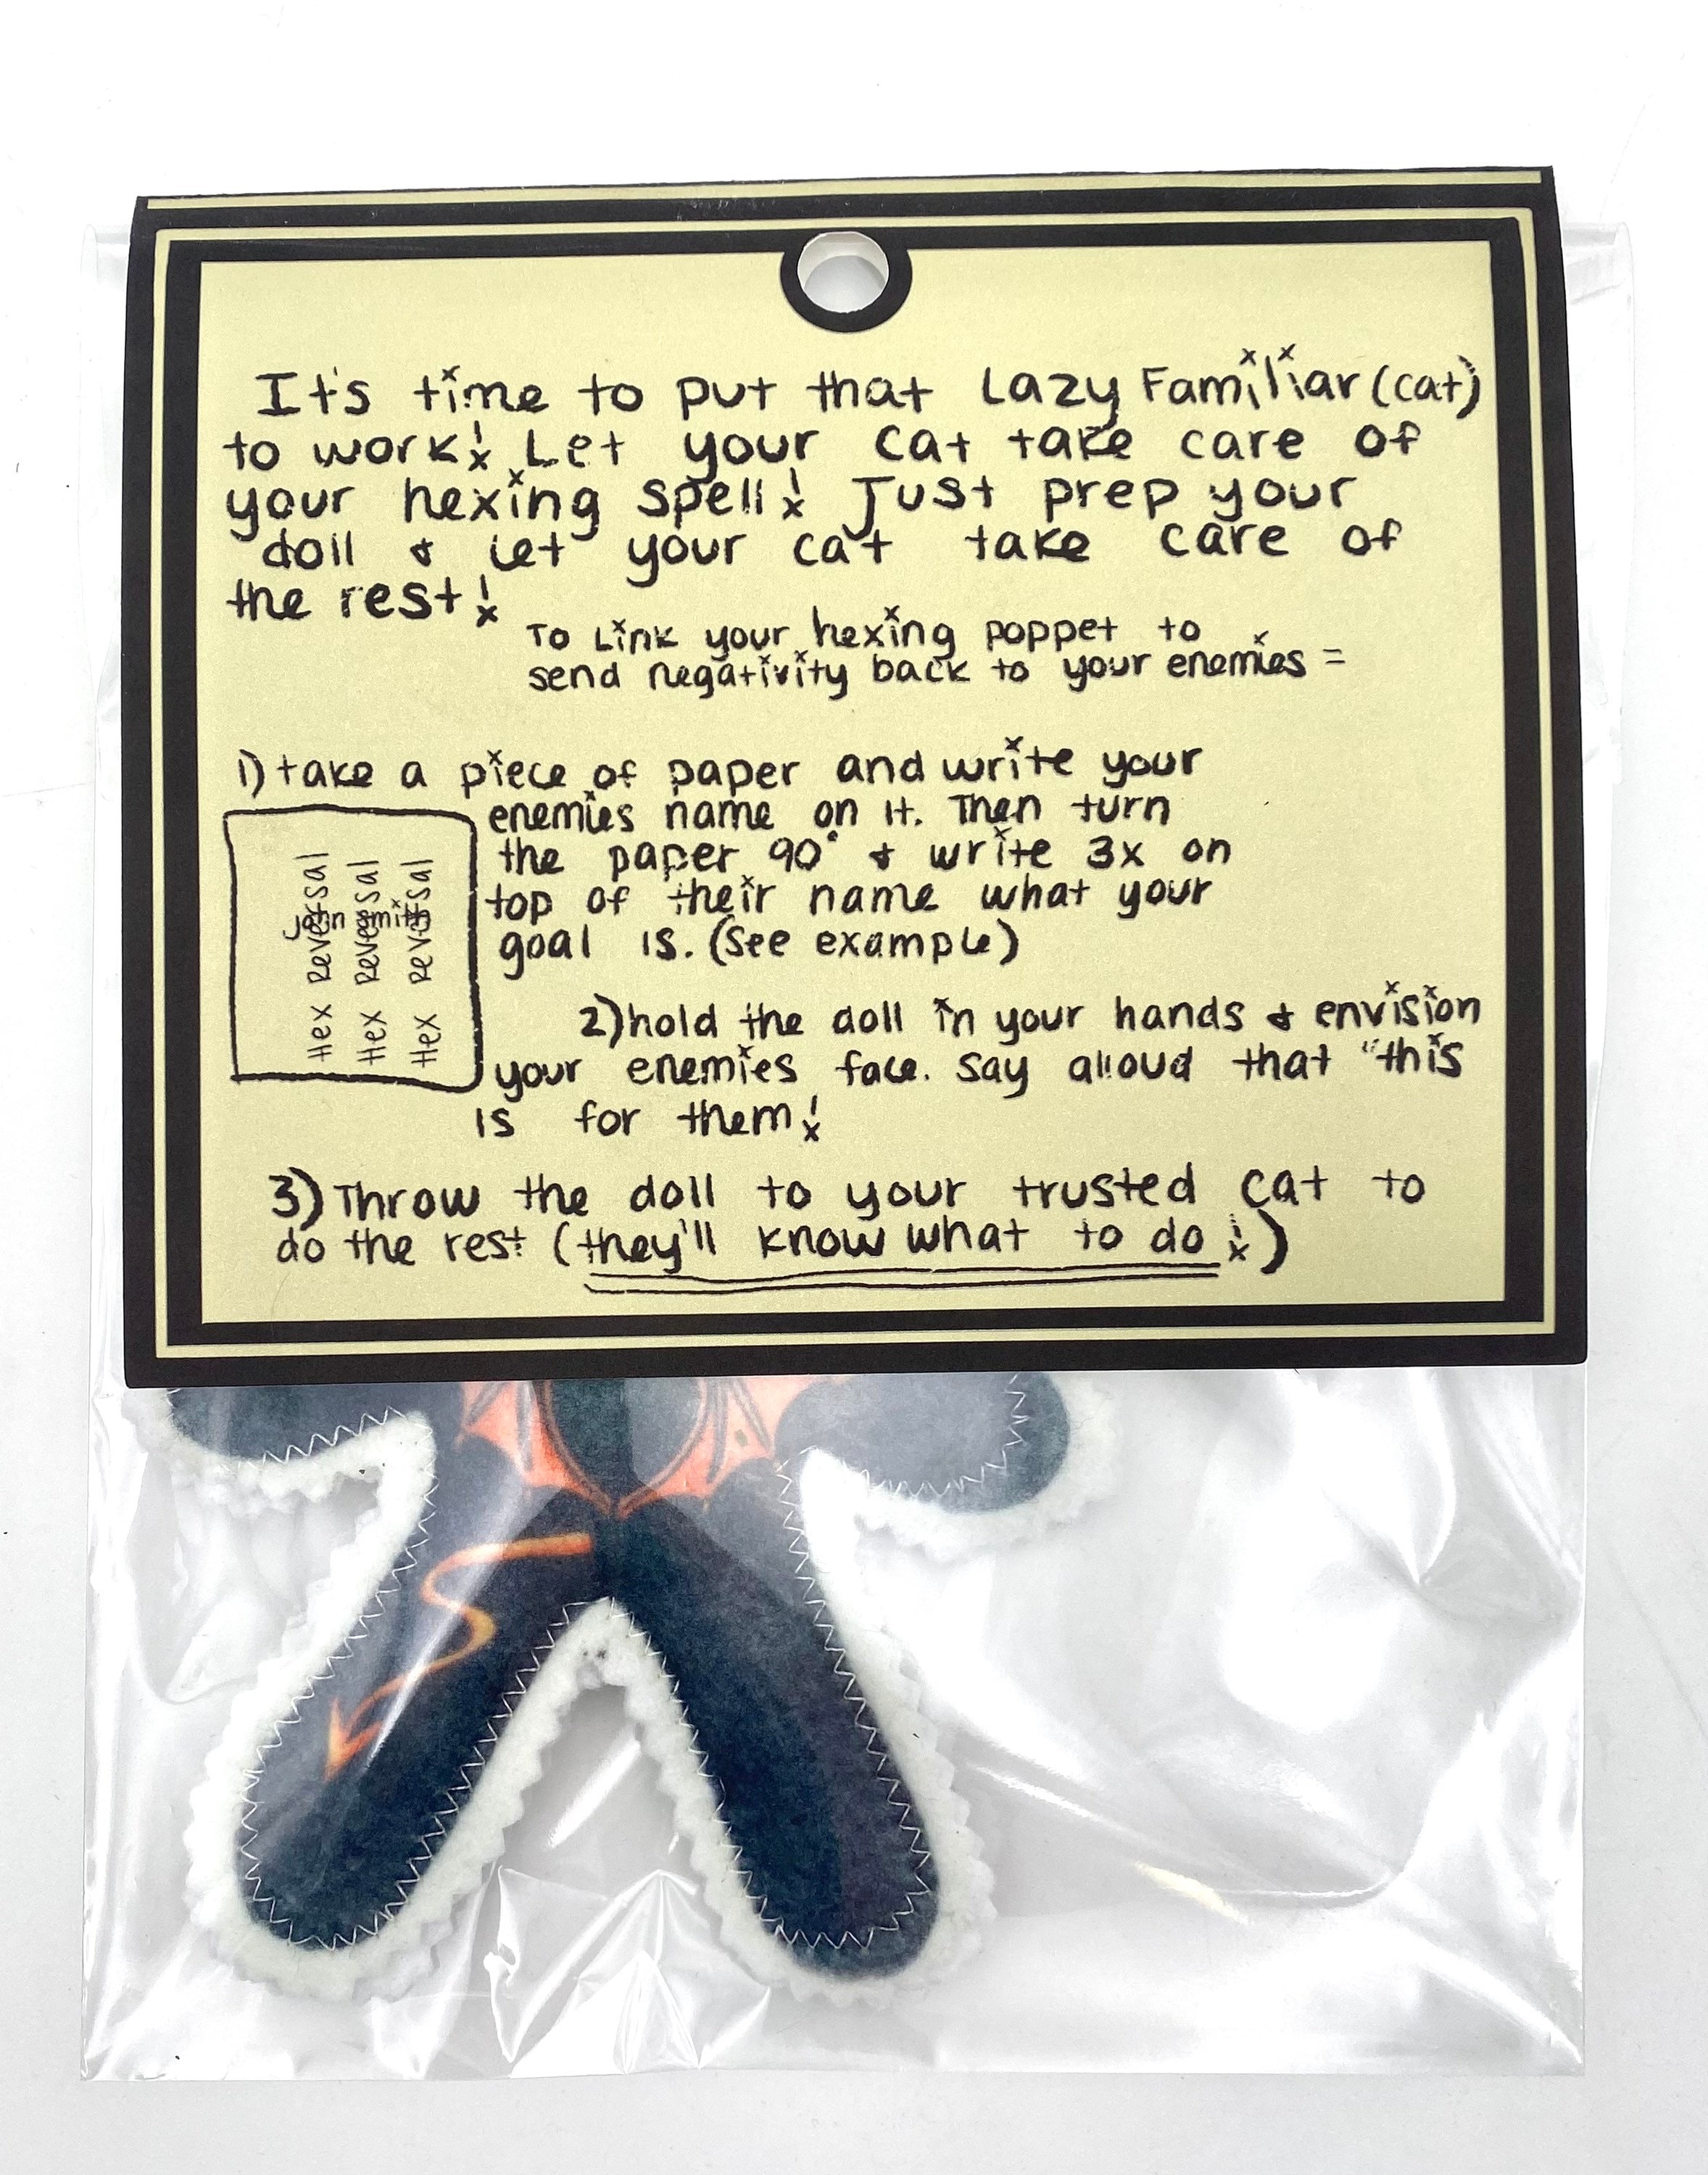 It's time to put that Lazy Familiar (cat)
to work! Let your cat take care of
your hexing spell! Just prep your
doll & let your cat take care of
the rest!
To Link your hexing poppet to
send negativity back to your enemies =
1) take a piece of paper and write your
enemies name on it. Then turn
the paper 90° & write 3x on
top of their name what your
goal is. (See example)
John Smith
Hex Reversal
Hex Reversal
Hex Reversal
2) hold the doll in your hands & envision
your enemies face. Say alloud that "this
is for them!
3) Throw the doll to your trusted cat to
do the rest (they'll know what to do!)